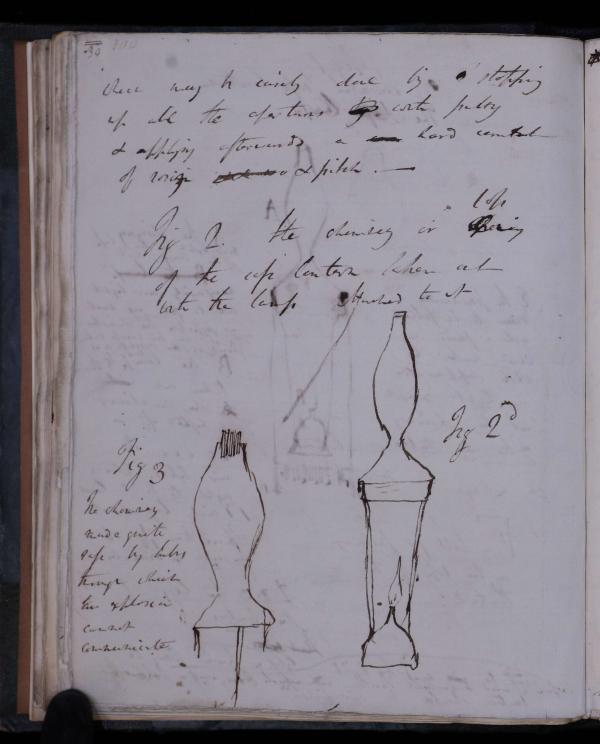 these may be easily done by stopping
up all the apertures with putty
& applying afterwards a hard cement
of rosin & pitch. —
Fig 2. the chimney or top
of the safe lantern taken out
with the lamp attached to it
Fig 2d
Fig 3
The chimney
made quite
safe by tubes
through which
the explosion
cannot
communicate